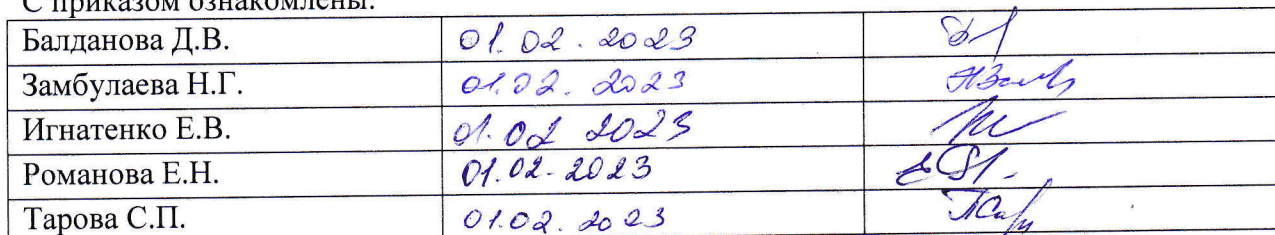 С приказом ознакомлены:
Балданова Д.В. 01.02.2023
Замбулаева Н.Г. 01.02.2023
Игнатенко Е.В. 01.02 2023
Романова Е.Н. 01.02-2023
Тарова С.П. 01.02.2023